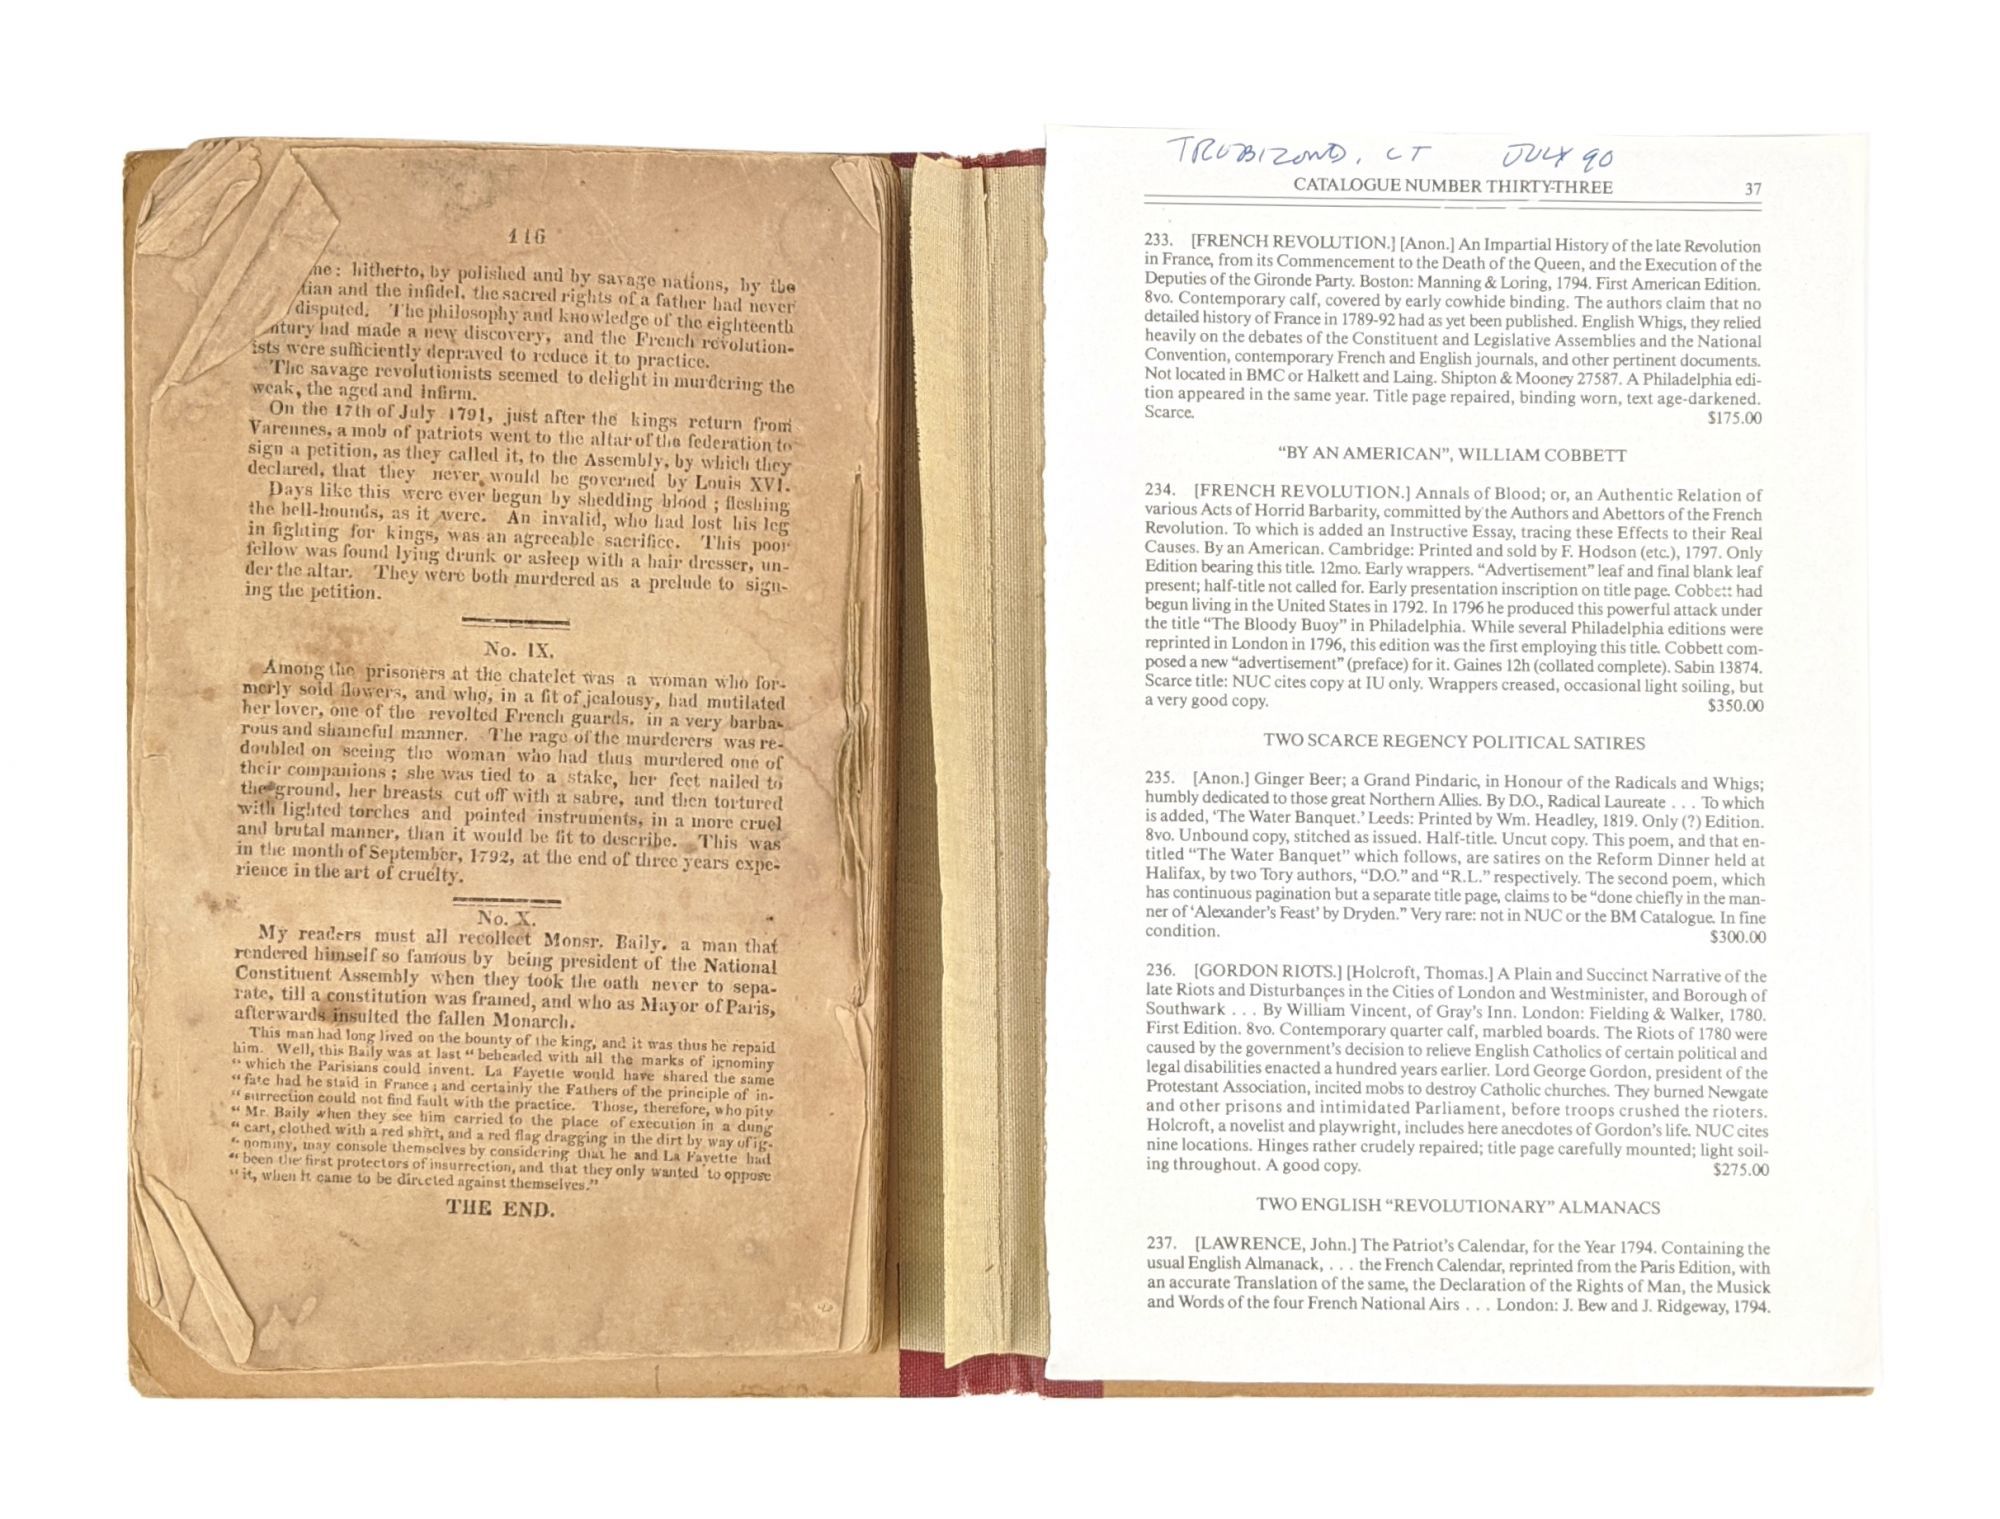 116
me: hitherto, by polished and by savage nations, by the
tian and the infidel, the sacred rights of a father had never
disputed. The philosophy and knowledge of the eighteenth
ntury had made a new discovery, and the French revolution-
ists were sufficiently depraved to reduce it to practice.
The savage revolutionists seemed to delight in murdering the
weak, the aged and infirm.
On the 17th of July 1791, just after the kings return from
Varennes, a mob of patriots went to the altar of the federation to
sign a petition, as they called it, to the Assembly, by which they
declared, that they never would be governed by Louis XVI.
Days like this were ever begun by shedding blood; fleshing
the hell-hounds, as it were. An invalid, who had lost his leg
in fighting for kings, was an agreeable sacrifice. This poor
fellow was found lying drunk or asleep with a hair dresser, un-
der the altar. They were both murdered as a prelude to sign-
ing the petition.
No. IX.
Among the prisoners at the chatelet was a woman who for-
merly sold flowers, and who, in a fit of jealousy, had mutilated
her lover, one of the revolted French guards, in a very barba-
rous and shameful manner. The rage of the murderers was re-
doubled on seeing the woman who had thus murdered one of
their companions; she was tied to a stake, her feet nailed to
the ground, her breasts cut off with a sabre, and then tortured
with lighted torches and pointed instruments, in a more cruel
and brutal manner, than it would be fit to describe. This was
in the month of September, 1792, at the end of three years expe-
rience in the art of cruelty.
No. X.
My readers must all recollect Monsr. Baily, a man that
rendered himself so famous by being president of the National
Constituent Assembly when they took the oath never to sepa-
rate, till a constitution was framed, and who as Mayor of Paris,
afterwards insulted the fallen Monarch.
This man had long lived on the bounty of the king, and it was thus he repaid
him. Well, this Baily was at last "beheaded with all the marks of ignominy
"which the Parisians could invent. La Fayette would have shared the same
"fate had he staid in France; and certainly the Fathers of the principle of in-
"surrection could not find fault with the practice. Those, therefore, who pity
"Mr. Baily when they see him carried to the place of execution in a dung
"cart, clothed with a red shirt, and a red flag dragging in the dirt by way of ig-
"nominy, may console themselves by considering that he and La Fayette had
"been the first protectors of insurrection, and that they only wanted to oppose
"it, when it came to be directed against themselves."
THE END.
TREBIZOND, CT JULY 90
CATALOGUE NUMBER THIRTY-THREE 37
233. [FRENCH REVOLUTION.] [Anon.] An Impartial History of the late Revolution
in France, from its Commencement to the Death of the Queen, and the Execution of the
Deputies of the Gironde Party. Boston: Manning & Loring, 1794. First American Edition.
8vo. Contemporary calf, covered by early cowhide binding. The authors claim that no
detailed history of France in 1789-92 had as yet been published. English Whigs, they relied
heavily on the debates of the Constituent and Legislative Assemblies and the National
Convention, contemporary French and English journals, and other pertinent documents.
Not located in BMC or Halkett and Laing. Shipton & Mooney 27587. A Philadelphia edi-
tion appeared in the same year. Title page repaired, binding worn, text age-darkened.
Scarce. $175.00
"BY AN AMERICAN", WILLIAM COBBETT
234. [FRENCH REVOLUTION.] Annals of Blood; or, an Authentic Relation of
various Acts of Horrid Barbarity, committed by the Authors and Abettors of the French
Revolution. To which is added an Instructive Essay, tracing these Effects to their Real
Causes. By an American. Cambridge: Printed and sold by F. Hodson (etc.), 1797. Only
Edition bearing this title. 12mo. Early wrappers. "Advertisement" leaf and final blank leaf
present; half-title not called for. Early presentation inscription on title page. Cobbett had
begun living in the United States in 1792. In 1796 he produced this powerful attack under
the title "The Bloody Buoy" in Philadelphia. While several Philadelphia editions were
reprinted in London in 1796, this edition was the first employing this title. Cobbett com-
posed a new "advertisement" (preface) for it. Gaines 12h (collated complete). Sabin 13874.
Scarce title: NUC cites copy at IU only. Wrappers creased, occasional light soiling, but
a very good copy. $350.00
TWO SCARCE REGENCY POLITICAL SATIRES
235. [Anon.] Ginger Beer; a Grand Pindaric, in Honour of the Radicals and Whigs;
humbly dedicated to those great Northern Allies. By D.O., Radical Laureate . . . To which
is added, 'The Water Banquet.' Leeds: Printed by Wm. Headley, 1819. Only (?) Edition.
8vo. Unbound copy, stitched as issued. Half-title. Uncut copy. This poem, and that en-
titled "The Water Banquet" which follows, are satires on the Reform Dinner held at
Halifax, by two Tory authors, "D.O." and "R.L." respectively. The second poem, which
has continuous pagination but a separate title page, claims to be "done chiefly in the man-
ner of 'Alexander's Feast' by Dryden." Very rare: not in NUC or the BM Catalogue. In fine
condition. $300.00
236. [GORDON RIOTS.] [Holcroft, Thomas.] A Plain and Succinct Narrative of the
late Riots and Disturbances in the Cities of London and Westminister, and Borough of
Southwark . . . By William Vincent, of Gray's Inn. London: Fielding & Walker, 1780.
First Edition. 8vo. Contemporary quarter calf, marbled boards. The Riots of 1780 were
caused by the government's decision to relieve English Catholics of certain political and
legal disabilities enacted a hundred years earlier. Lord George Gordon, president of the
Protestant Association, incited mobs to destroy Catholic churches. They burned Newgate
and other prisons and intimidated Parliament, before troops crushed the rioters.
Holcroft, a novelist and playwright, includes here anecdotes of Gordon's life. NUC cites
nine locations. Hinges rather crudely repaired; title page carefully mounted; light soil-
ing throughout. A good copy. $275.00
TWO ENGLISH "REVOLUTIONARY" ALMANACS
237. [LAWRENCE, John.] The Patriot's Calendar, for the Year 1794. Containing the
usual English Almanack, . . . the French Calendar, reprinted from the Paris Edition, with
an accurate Translation of the same, the Declaration of the Rights of Man, the Musick
and Words of the four French National Airs . . . London: J. Bew and J. Ridgeway, 1794.